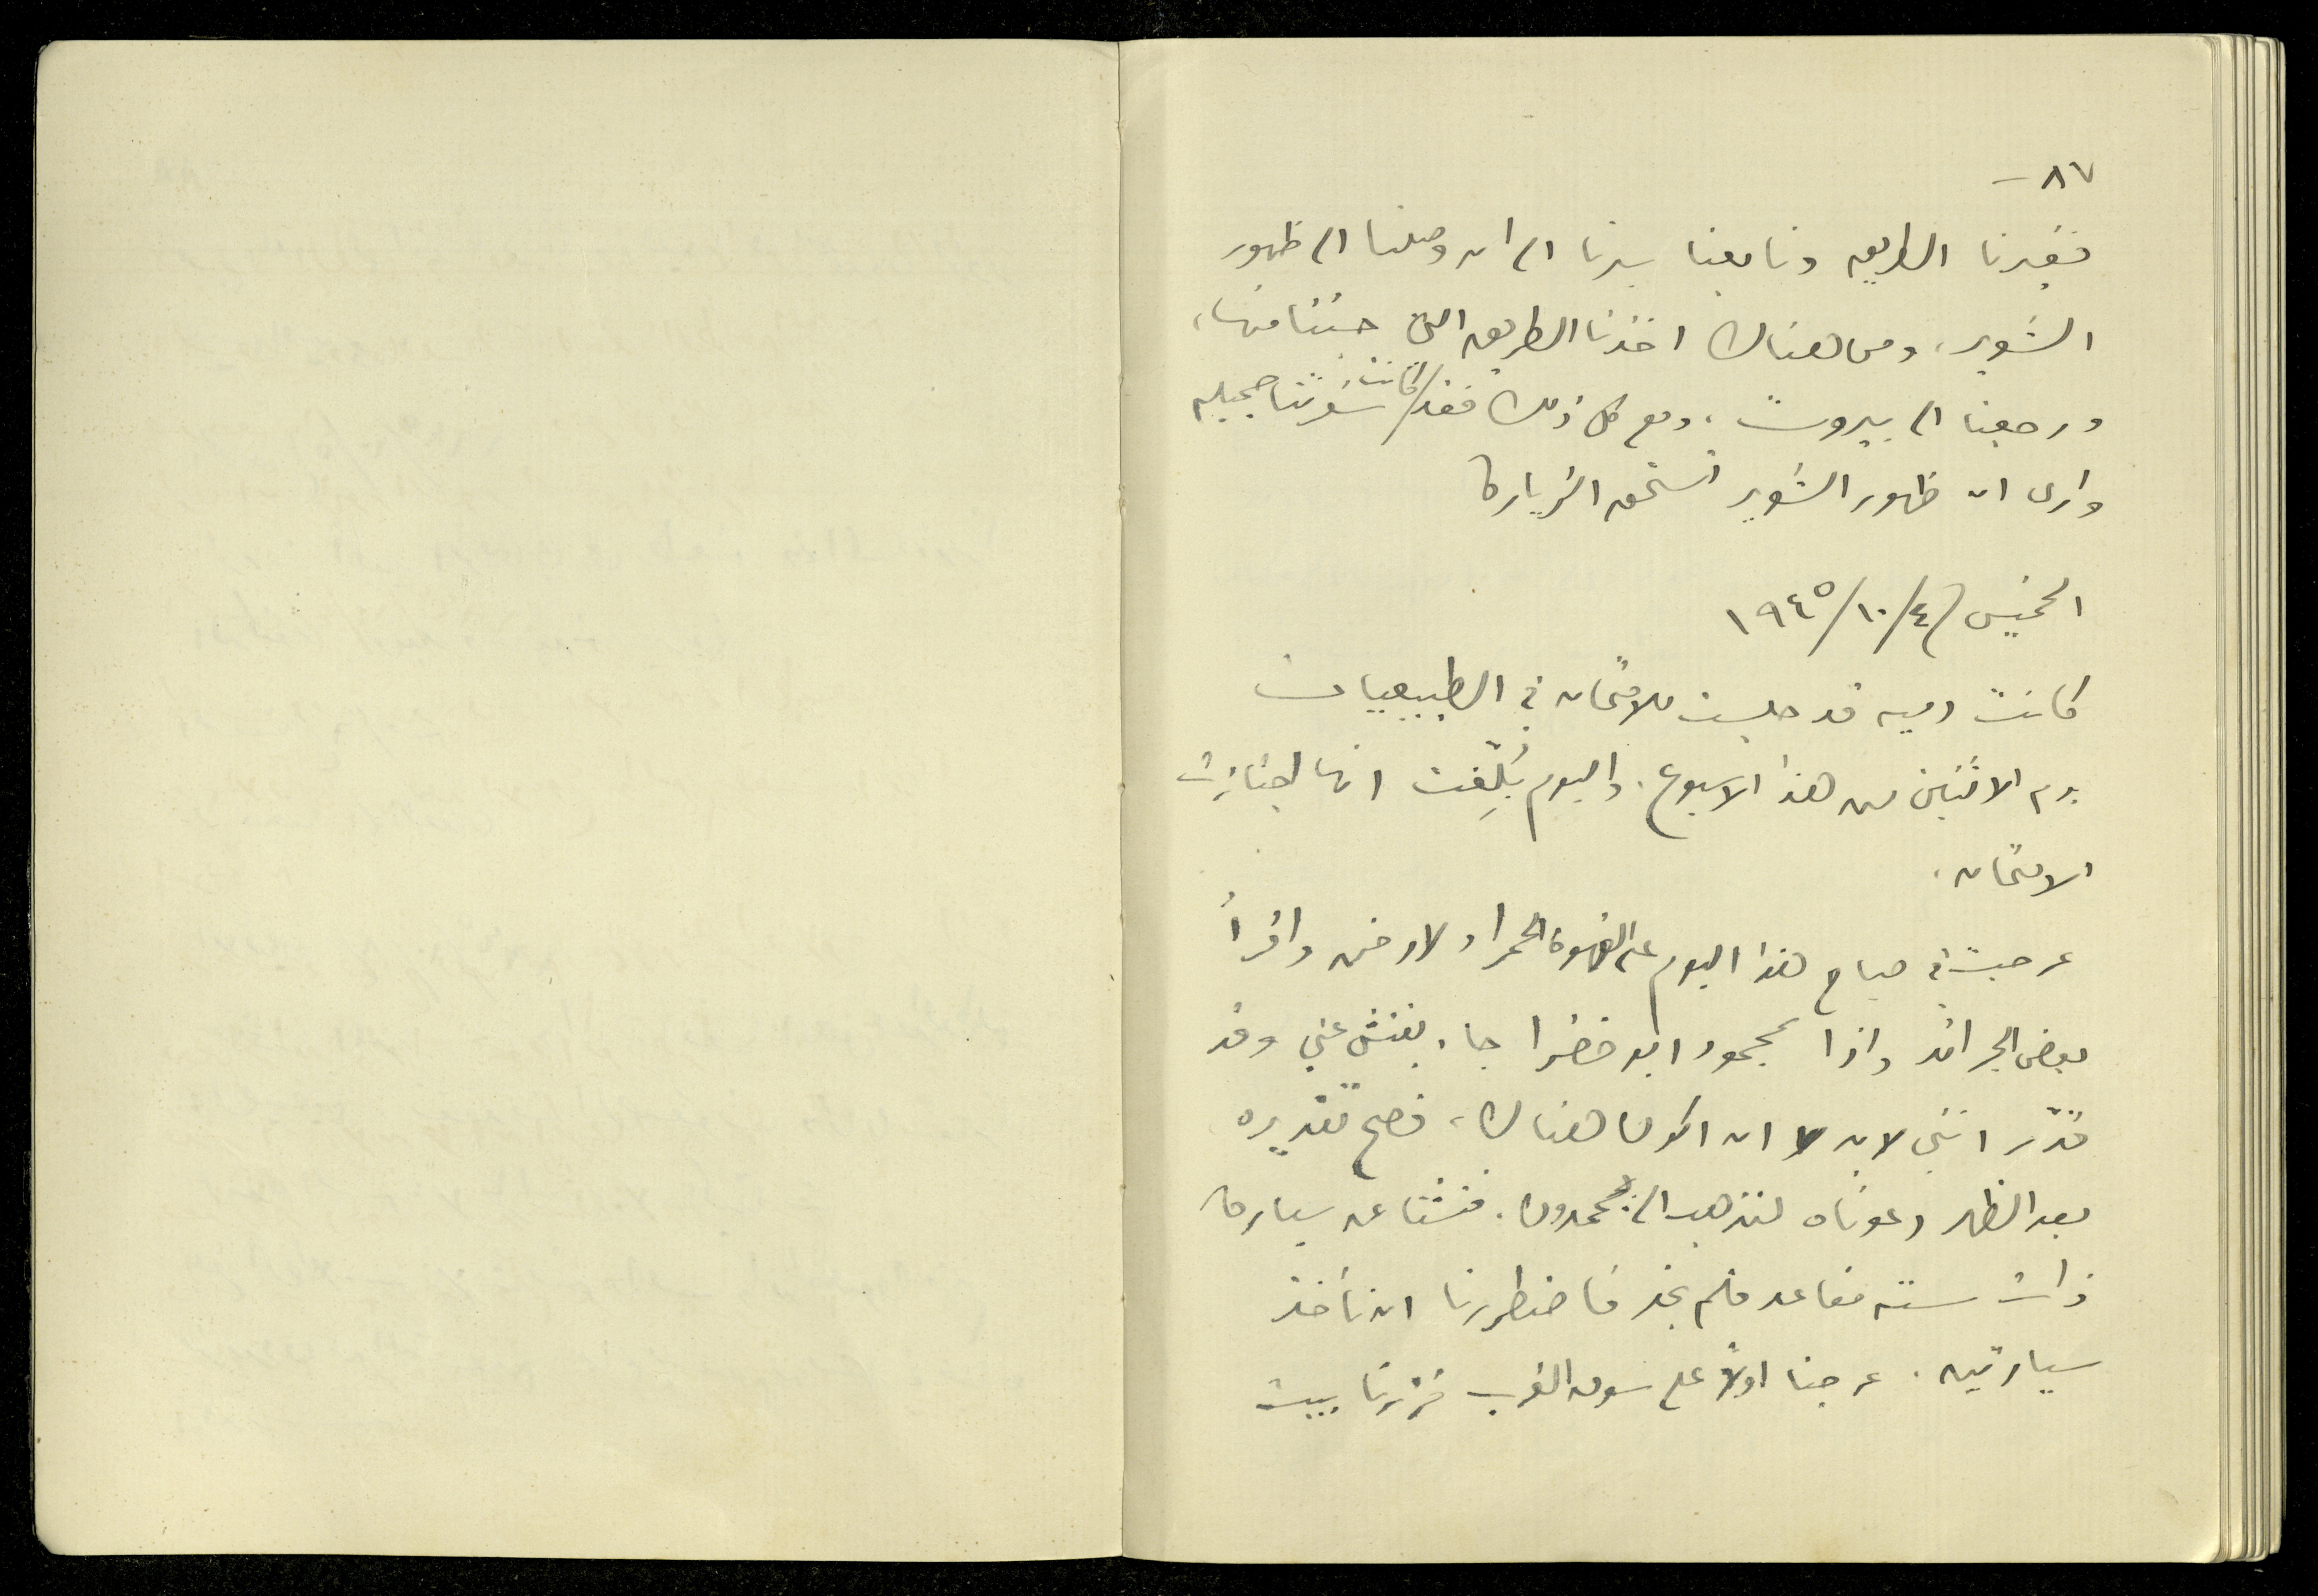 ٨٧-
فغيرنا الطريق وتابعنا سيرنا الى ان وصلنا الى ظهور
الشوير، ومن هناك اخذنا الطريق التي جئنا منها،
ورجعنا الى بيروت، ومع كل ذلك فقد كانت سفرتنا جميله
وارى ان ظهور الشوير تستحق الزيارة
الخميس ٤/١٠/١٩٤٥
كانت دميه قد جلست للامتحان في الطبيعيات
يوم الاثنين من هذا الاسبوع. واليوم بُلِّغت انها اجتازت
الامتحان.
عرجت في صباح هذا اليوم على القهوة الحمراء لادخن واقرأ
بعض الجرائد واذا بمحمود ابو خضرا جاء يفتش عني وقد
قدّر انني لا بد ان اكون هناك، فصح تقديره
بعد الظهر دعوناه لنذهب الى بحمدون. فتشنا عن سيارة
ذات ستة مقاعد فلم نجد فاضطررنا ان نأخذ
سيارتين. عرجنا اولاً على سوق الغرب فزرنا بيت